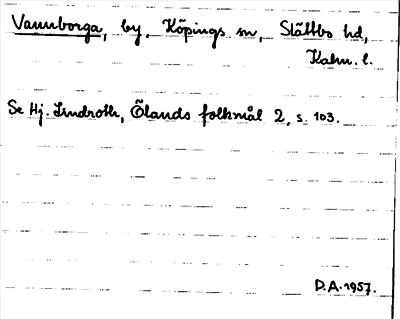 Vannborga, by, Köpings sn, Slättbo hd,
Kalm. l.
Se Hj. Lindroth, Ölands folkmål 2, s. 103.
D.A. 1957.